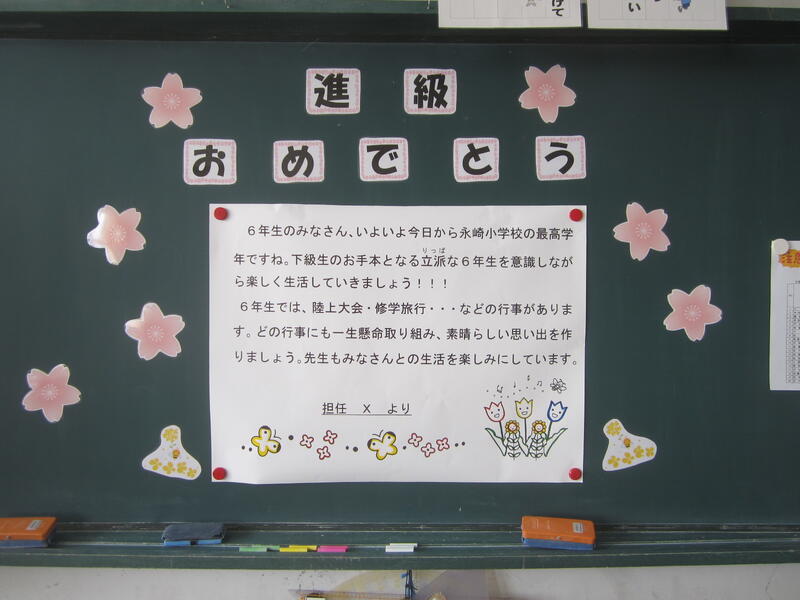 げて
い
進級
おめでとう
６年生のみなさん、いよいよ今日から永崎小学校の最高学
年ですね。下級生のお手本となる立派な６年生を意識しなが
りっぱ
ら楽しく生活していきましょう！！！
６年生では、陸上大会・修学旅行・・・などの行事がありま
す。どの行事にも一生懸命取り組み、素晴らしい思い出を作
りましょう。先生もみなさんとの生活を楽しみにしています。
担任　X　より
注意